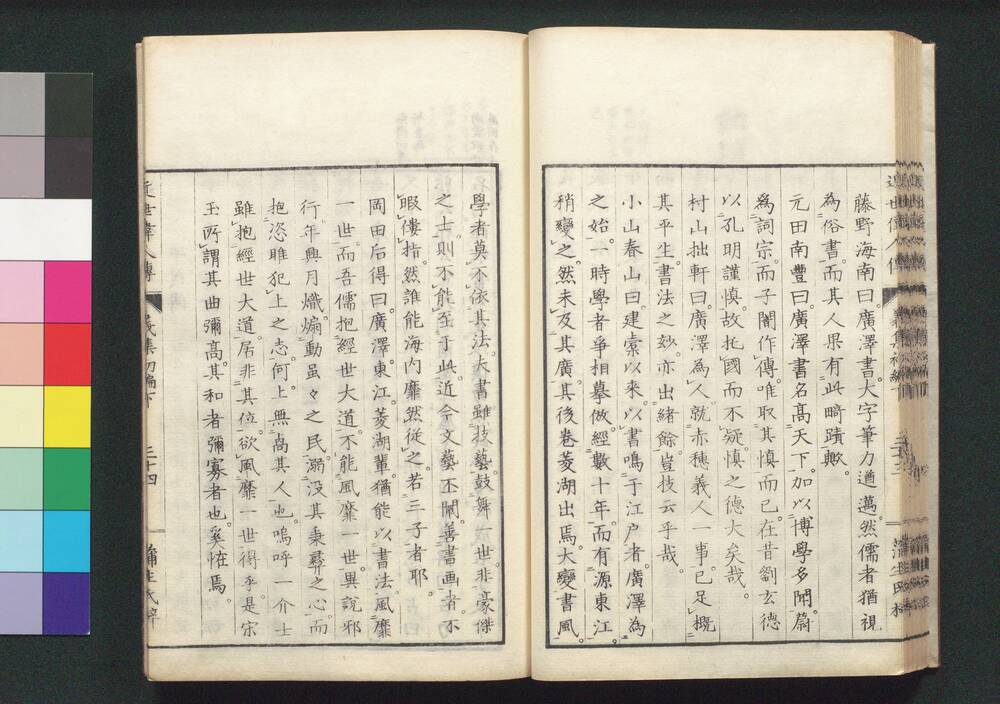 藤野海南曰。廣澤書。大字筆力遒邁。然儒者猶視
為俗書。而其人果有此畸蹟歟。
元田南豐曰。廣澤書名髙天下。加以博學多聞。蔚
為詞宗。而子闇作傳。唯取其慎而已。在昔劉玄德
以孔明謹慎。故托國而不疑。慎之德大矣哉。
村山拙軒曰。廣澤為人。就赤穗義人一事。已足概
其平生。書法之妙。亦出緒餘。豈技云乎哉。
小山春山曰建橐以來。以書鳴于江户者。廣澤為
之始。一時學者爭相摹倣。經數十年。而有源東江。
稍變之。然未及其廣。其後卷菱湖出焉。大變書風。
學者莫不依其法。大書雖技藝。鼓舞一世。非豪傑
之士。則不能至于此。近今文藝丕闡。善書画者。不
暇僂指。然誰能海内靡然從之。若三子者耶。
岡田后得曰。廣澤。東江。菱湖輩。猶能以書法。風靡
一世。而吾儒抱經世大道。不能風靡一世。異說邪
行。年與月熾。煽動虽々之民。溺没其秉彛之心。而
抱恣睢犯上之志。何上無啇其人也。嗚呼一介士
雖抱經世大道。居非其位。欲風靡一世得乎。是宋
玉所謂其曲彌髙。其和者彌寡者也。奚恠焉。
近世偉人傳
義集初編下
三十四
蒲生氏梓